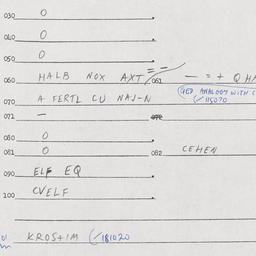 030 0
040 0
050 0
060 HALB NOX AXT 061 — = + Q HA
(GEO ANALOGY WITH C
070 A FERTL CU NAJ-N (/115070
071 —
080 0
081 0 082 CEHEN
090 ELF EQ
100 CVELF
KROS+IM (/181020